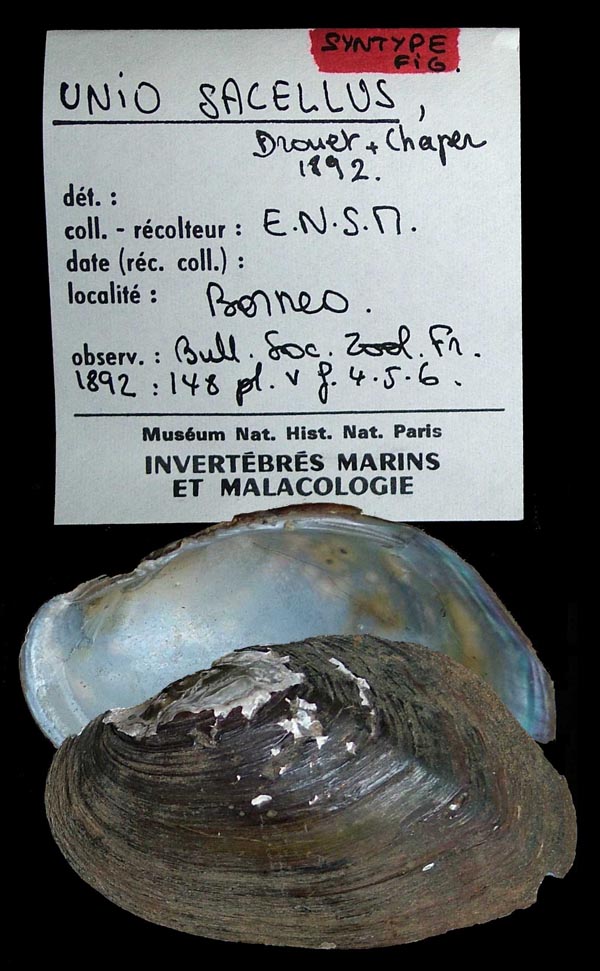 SYNTYPE
FIG.
UNIO SACELLUS,
Drouet + Chaper
1892.
dét. :
coll. - récolteur : E.N.S.M.
date (réc. coll.) :
localité : Borneo.
observ. : Bull. Soc. Zool. Fr.
1892 : 148 pl. v f. 4.5.6.
Muséum Nat. Hist. Nat. Paris
INVERTÉBRÉS MARINS
ET MALACOLOGIE